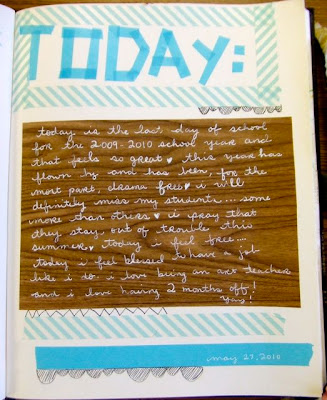 TODAY:
today is the last day of school
for the 2009-2010 school year and
that feels so great♥ this year has
flown by and has been, for the
most part, drama free♥ i will
definitely miss my students....some
more than others♥ i pray that
they stay out of trouble this
summer♥ today i feel free....
today i feel blessed to have a job
like i do. i love being an art teacher
and i love having 2 months off!
yay!
may 27, 2010